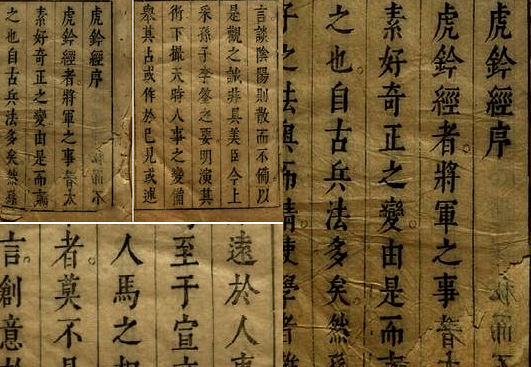 虎鈐經序
虎鈐經者將軍之事
素好奇正之變由是而
之也自古兵法多矣然孫
言談陰陽則散而不備以
是觀之誠非具美臣今上
采孫子李筌之要明演其
術下撮天時人事之變備
舉其占或作於己見或述
虎鈐經序
虎鈐經者將軍之事
素好奇正之變由是而
之也自古兵法多矣然
子之法奧而精使學者難
遠於人事
至于宣
人馬之
者莫不
言創意於